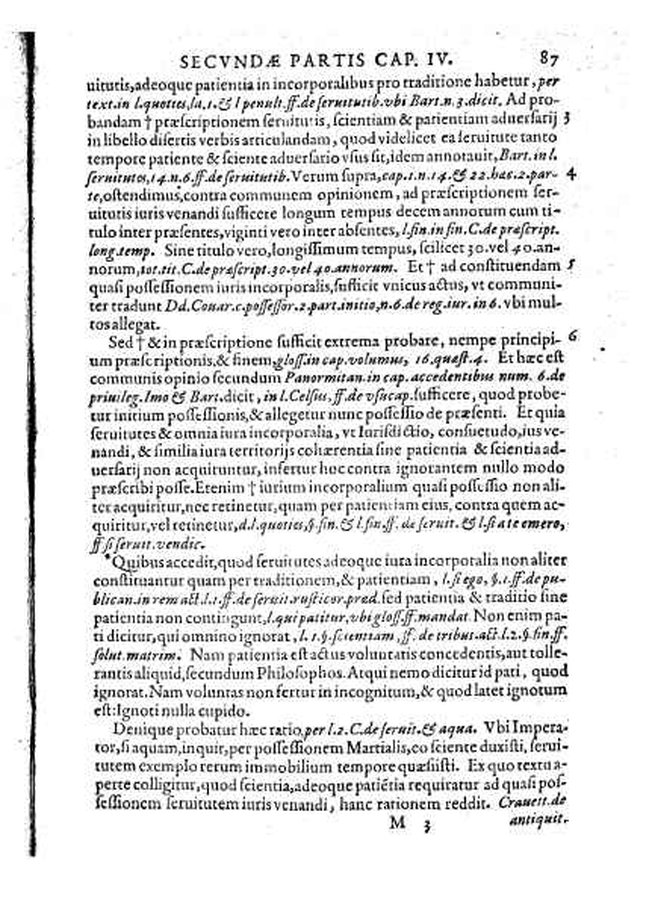 SECVNDÆ PARTIS CAP. IV. 87
uitutis,adeoque patientia in incorporalibus pro traditione habetur, per
text.in l.quoties,la.1.& l penult.ff.de seruitutib.vbi Bart.n.3.dicit. Ad pro-
bandam † præscriptionem seruitutis, scientiam & patientiam aduersarij 3
in libello disertis verbis articulandam, quod videlicet ea seruitute tanto
tempore patiente & sciente aduersario vsus sit,idem annotauit, Bart.in l.
seruitutes,14.n.6.ff.de seruitutib. Verum supra,cap.1.n.14.& 22.hac.2.par- 4
te,ostendimus,contra communem opinionem, ad præscriptionem ser-
uitutis iuris venandi sufficere longum tempus decem annorum cum ti-
tulo inter præsentes,viginti vero inter absentes, l.fin.in fin.C.de præscript.
long.temp. Sine titulo vero,longissimum tempus, scilicet 30.vel 40.an-
norum,tot.tit.C.de præscript.30.vel 40.annorum. Et † ad constituendam 5
quasi possessionem iuris incorporalis,sufficit vnicus actus, vt communi-
ter tradunt Dd.Couar.c.possessor.2.part.initio,n.6.de reg.iur.in 6. vbi mul-
tos allegat.
Sed † & in præscriptione sufficit extrema probare, nempe principi- 6
um præscriptionis,& finem,gloss.in cap.volumus, 16.quæst.4. Et hæc est
communis opinio secundum Panormitan.in cap.accedentibus num. 6.de
priuileg.Imo & Bart.dicit, in l.Celsus, ff.de vsucap.sufficere, quod probe-
tur initium possessionis,& allegetur nunc possessio de præsenti. Et quia
seruitutes & omnia iura incorporalia, vt Iurisdictio, consuetudo,ius ve-
nandi, & similia iura territorijs cohærentia sine patientia & scientia ad-
uersarij non acquiruntur, infertur hoc contra ignorantem nullo modo
præscribi posse.Etenim † iurium incorporalium quasi possessio non ali-
ter acquiritur,nec retinetur,quam per patientiam eius, contra quem ac-
quiritur,vel retinetur,d.l.quoties,§.fin.& l.fin.ff. de seruit. & l.si a te emero,
ff.si seruit.vendic.
Quibus accedit,quod seruitutes adeoque iura incorporalia non aliter
constituantur quam per traditionem,& patientiam, l.si ego, §.1.ff.de pu-
blican.in rem act.l.1.ff.de seruit.rusticor.præd.sed patientia & traditio sine
patientia non contingunt,l.qui patitur,vbi gloss.ff.mandat. Non enim pa-
ti dicitur,qui omnino ignorat, l. 1.§.scientiam, ff. de tribut.act.l.2.§.fin.ff.
solut.matrim. Nam patientia est actus voluntatis concedentis,aut tolle-
rantis aliquid,secundum Philosophos.Atqui nemo dicitur id pati, quod
ignorat.Nam voluntas non fertur in incognitum,& quod latet ignotum
est:Ignoti nulla cupido.
Denique probatur hæc ratio,per l.2.C.de seruit.& aqua. Vbi Impera-
tor,si aquam,inquit,per possessionem Martialis,eo sciente duxisti, serui-
tutem exemplo rerum immobilium tempore quæsiisti. Ex quo textu a-
perte colligitur,quod scientia,adeoque patiẽtia requiratur ad quasi pos-
sessionem seruitutem iuris venandi, hanc rationem reddit. Crauett.de
M 3 antiquit.